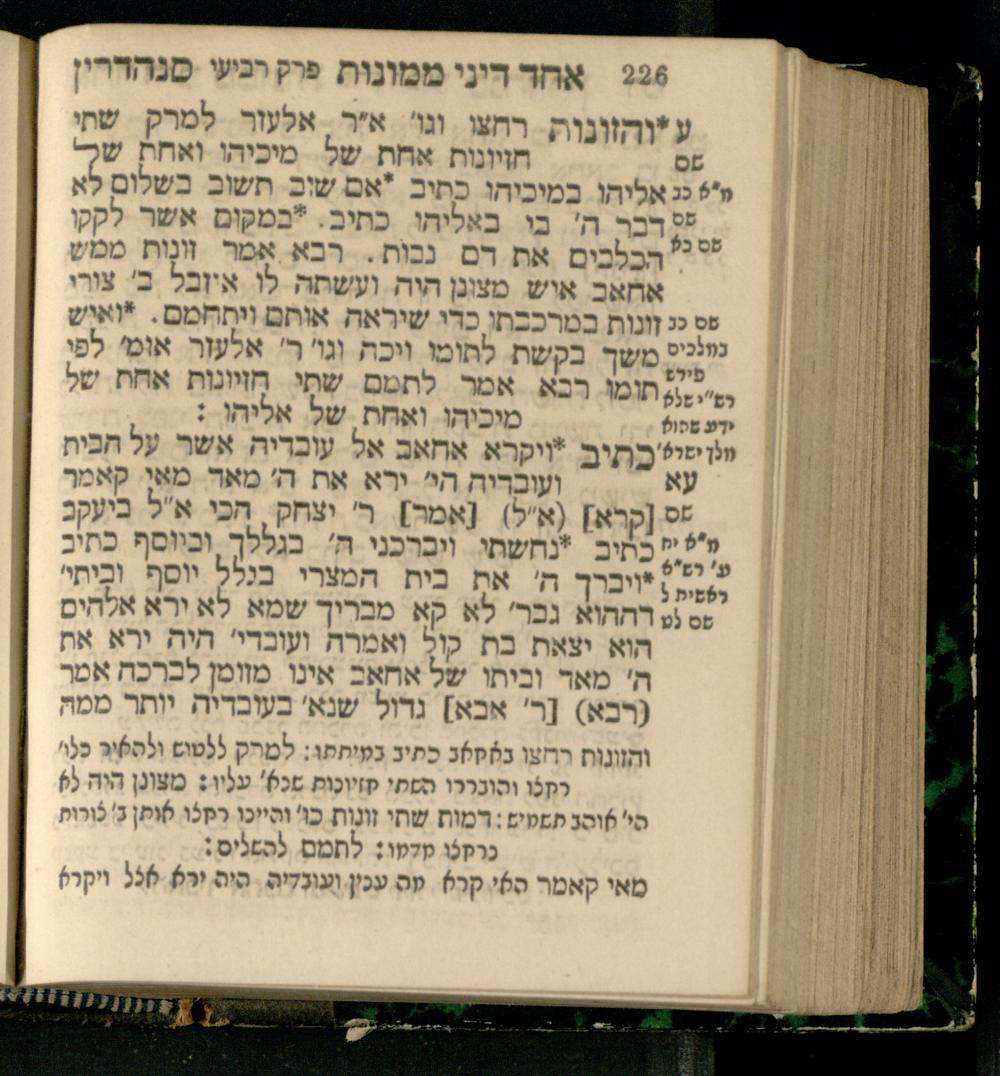 226 אחד דיני ממונות פרק רביעי סנהדרין
ע *והזונות רחצו וגו' א"ר אלעזר למרק שתי
שם חזיונות אחת של מיכיהו ואחת של
מ"א כב אליהו במיכיהו כתיב *אם שוב תשוב בשלום לא
שם דבר ה' בי באליהו כתיב. *במקום אשר לקקו
שם כא הכלבים את דם נבות. רבא אמר זונות ממש
אחאב איש מצונן היה ועשתה לו איזבל ב' צורי
שם כב זונות במרכבתו כדי שיראה אותם ויתחמם. *ואיש
במלכים משך בקשת לתומו ויכה וגו' ר' אלעזר אומ' לפי
פירש תומו רבא אמר לתמם שתי חזיונות אחת של
רש"י שלא מיכיהו ואחת של אליהו :
ידע שהוא
מלך ישרא' כתיב *ויקרא אחאב אל עובדיה אשר על הבית
עא ועובדיה הי' ירא את ה' מאד מאי קאמר
שם [קרא] (א"ל) [אמר] ר' יצחק הכי א"ל ביעקב
מ"א יח כתיב *נחשתי ויברכני ה' בגללך וביוסף כתיב
ע' רש"א *ויברך ה' את בית המצרי בגלל יוסף וביתי'
ראשית ל
שם לט דההוא גבר' לא קא מבריך שמא לא ירא אלהים
הוא יצאת בת קול ואמרה ועובדי' היה ירא את
ה' מאד וביתו של אחאב אינו מזומן לברכה אמר
(רבא) [ר' אבא] גדול שנא' בעובדיה יותר ממה
והזונות רחצו באחאב כתיב במיתתו: למרק ללטוש ולהאיר כלו'
רחצו והובררו השתי חזיונות שנא' עליו: מצונן היה לא
הי' אוהב תשמיש: דמות שתי זונות כו' והיינו רחצו אותן ב' צורות
כרחצו מדמו: לתמם להשלים:
מאי קאמר האי קרא מה ענין ועובדיה היה ירא אצל ויקרא